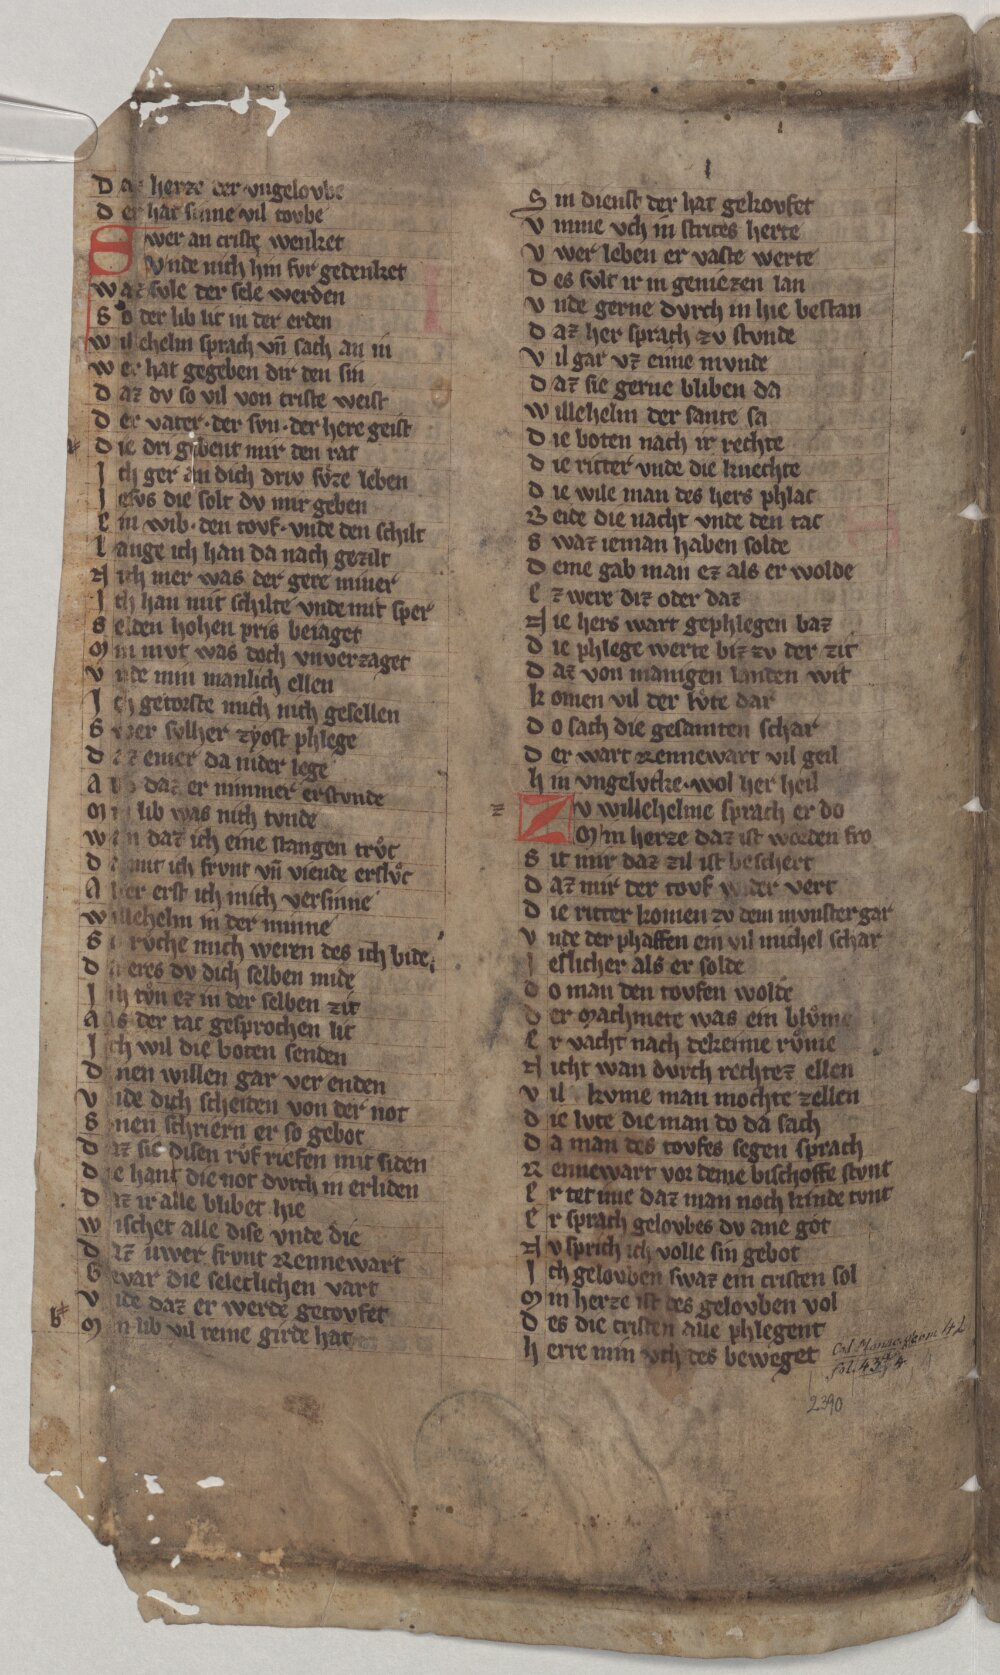 D az herze der vngelovbe
D er hat sinne vil tovbe
S wer an criste wenket
Vnde nich hin fvr gedenket
W az sule der sele werden
S o der lib lit in der erden
W illehelm sprach vn̄ sach an in
W er hat gegeben dir den sin
D az dv so vil von criste weist
D er vater · der svn · der here geist
D ie dri gebent mir den rat
I ch ger an dich driv svͦze leben
I esvs die solt dv mir geben
E in wib · den tovf · vnde den schilt
L ange ich han da nach gezilt
N ich mer was der gere miner
I ch han mit schilte vnde mit sper
S elden hohen pris beiaget
M in mvt was doch vnverzaget
V nde min manlich ellen
I ch getorste mich nich gesellen
S wer sulher tyost phlege
D az einer da nider lege
A vb daz er nimmer erstvnde
M in lib was nich tvnde
W an daz ich eine stangen trvͦc
D a mit ich frvnt vn̄ viende erslvͦc
A ber erst ich mich versinne
W illehelm in der minne
G e rvche mich weren des ich bite
D a eres dv dich selben mite
I ch tvͦn ez in der selben zit
A as der tac gesprochen lit
I ch wil die boten senden
D inen willen gar ver enden
V nde dich scheiden von der not
S inen schriern er so gebot
D az sie disen rvͦf riefen mit siten
D ie hant die not dvrch in erliden
D az ir alle blibet hie
W ischet alle dise vnde die
D az uwer frvnt Rennewart
G evar die seleclichen vart
V nde daz er werde getovfet
M in lib vil reine girde hat
S in dienst der hat gekovfet
V mme vch in strites herte
V wer leben er vaste werte
D es svlt ir in geniezen lan
V nde gerne dvrch in hie bestan
D az her sprach zv stvnde
V il gar vz eime mvnde
D az sie gerne bliben da
W illehelm der sante sa
D ie boten nach ir rechte
D ie ritter vnde die knechte
D ie wile man des hers phlac
B eide die nacht vnde den tac
S waz ieman haben solde
D eme gab man ez als er wolde
E z were diz oder daz
N ie hers wart gephlegen baz
D ie phlege werte biz zv der zit
D az von manigen landen wit
K omen vil der lvͦte dar
D o sach die gesamten schar
D er wart Rennewart vil geil
H in vngelvcke · wol her heil
Z v willehelme sprach er do
Min herze daz ist worden fro
S it mir daz zil ist beschert
D az mir der tovf wider vert
D ie ritter komen zv dem mvnster gar
V nde der phaffen ein vil michel schar
I eslicher als er solde
D o man den tovfen wolde
D er Machmete was ein blvͦme
E r vacht nach dekeime rvͦme
N icht wan dvrch rechtez ellen
V il kvme man mochte zellen
D ie lvte die man do da sach
D a man des tovfes segen sprach
R ennewart vor deme bischoffe stvnt
E r tet ime daz man noch kinde tvnt
E r sprach gelovbes dv ane got
N v sprich ich volle sin gebot
I ch gelovben swaz ein cristen sol
M in herze ist des gelovben vol
D es die cristen alle phlegent
H erre min vch des beweget
2390